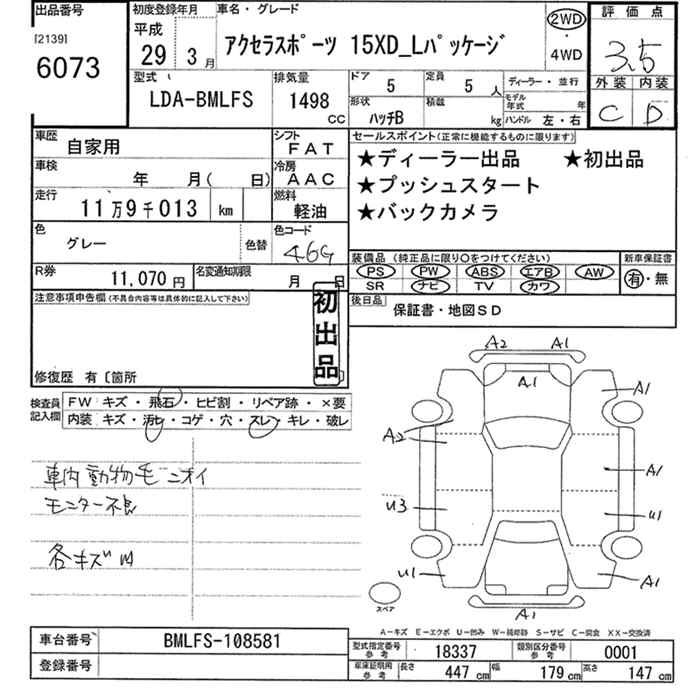 出品番号
[2139]
6073
初度登録年月
平成
29年 3月
車名・グレード
アクセラスポーツ 15XD_Lパッケージ
2WD
・
4WD
評価点
3.5
外装 内装
C D
型式
LDA-BMLFS
排気量
1498 CC
ドア 5
定員 5人
形状 ハッチB
積載 kg
ディーラー・並行
モデル年式 年
ハンドル 左・右
車歴 自家用
シフト FAT
車検 年 月( 日)
冷房 AAC
走行 11万9千013 km
燃料 軽油
色 グレー 色替
色コード 46G
R券 11,070円
名変通知期限 月 日
セールスポイント(正常に機能するものに限ります)
★ディーラー出品 ★初出品
★プッシュスタート
★バックカメラ
装備品(純正品に限り○をつけてください)
PS PW ABS エアB AW
SR ナビ TV カワ
新車保証書
有・無
後日品 保証書・地図SD
注意事項申告欄(不具合内容等は具体的に記入して下さい)
初出品
修復歴 有〔箇所
検査員記入欄
FW キズ・飛石・ヒビ割・リペア跡・×要
内装 キズ・汚れ・コゲ・穴・スレ・キレ・破レ
車内動物毛ニオイ
モニター不良
各キズW
A2 A1
A1
A1
A2
A1
U3
U1
U1
A1
A1
スペア
A−キズ E−エクボ U−凹み W−補修跡 S−サビ C−腐食 XX−交換済
車台番号 BMLFS-108581
登録番号
型式指定番号 参考 18337
類別区分番号 参考 0001
車庫証明用 参考 長さ 447cm 幅 179cm 高さ 147cm